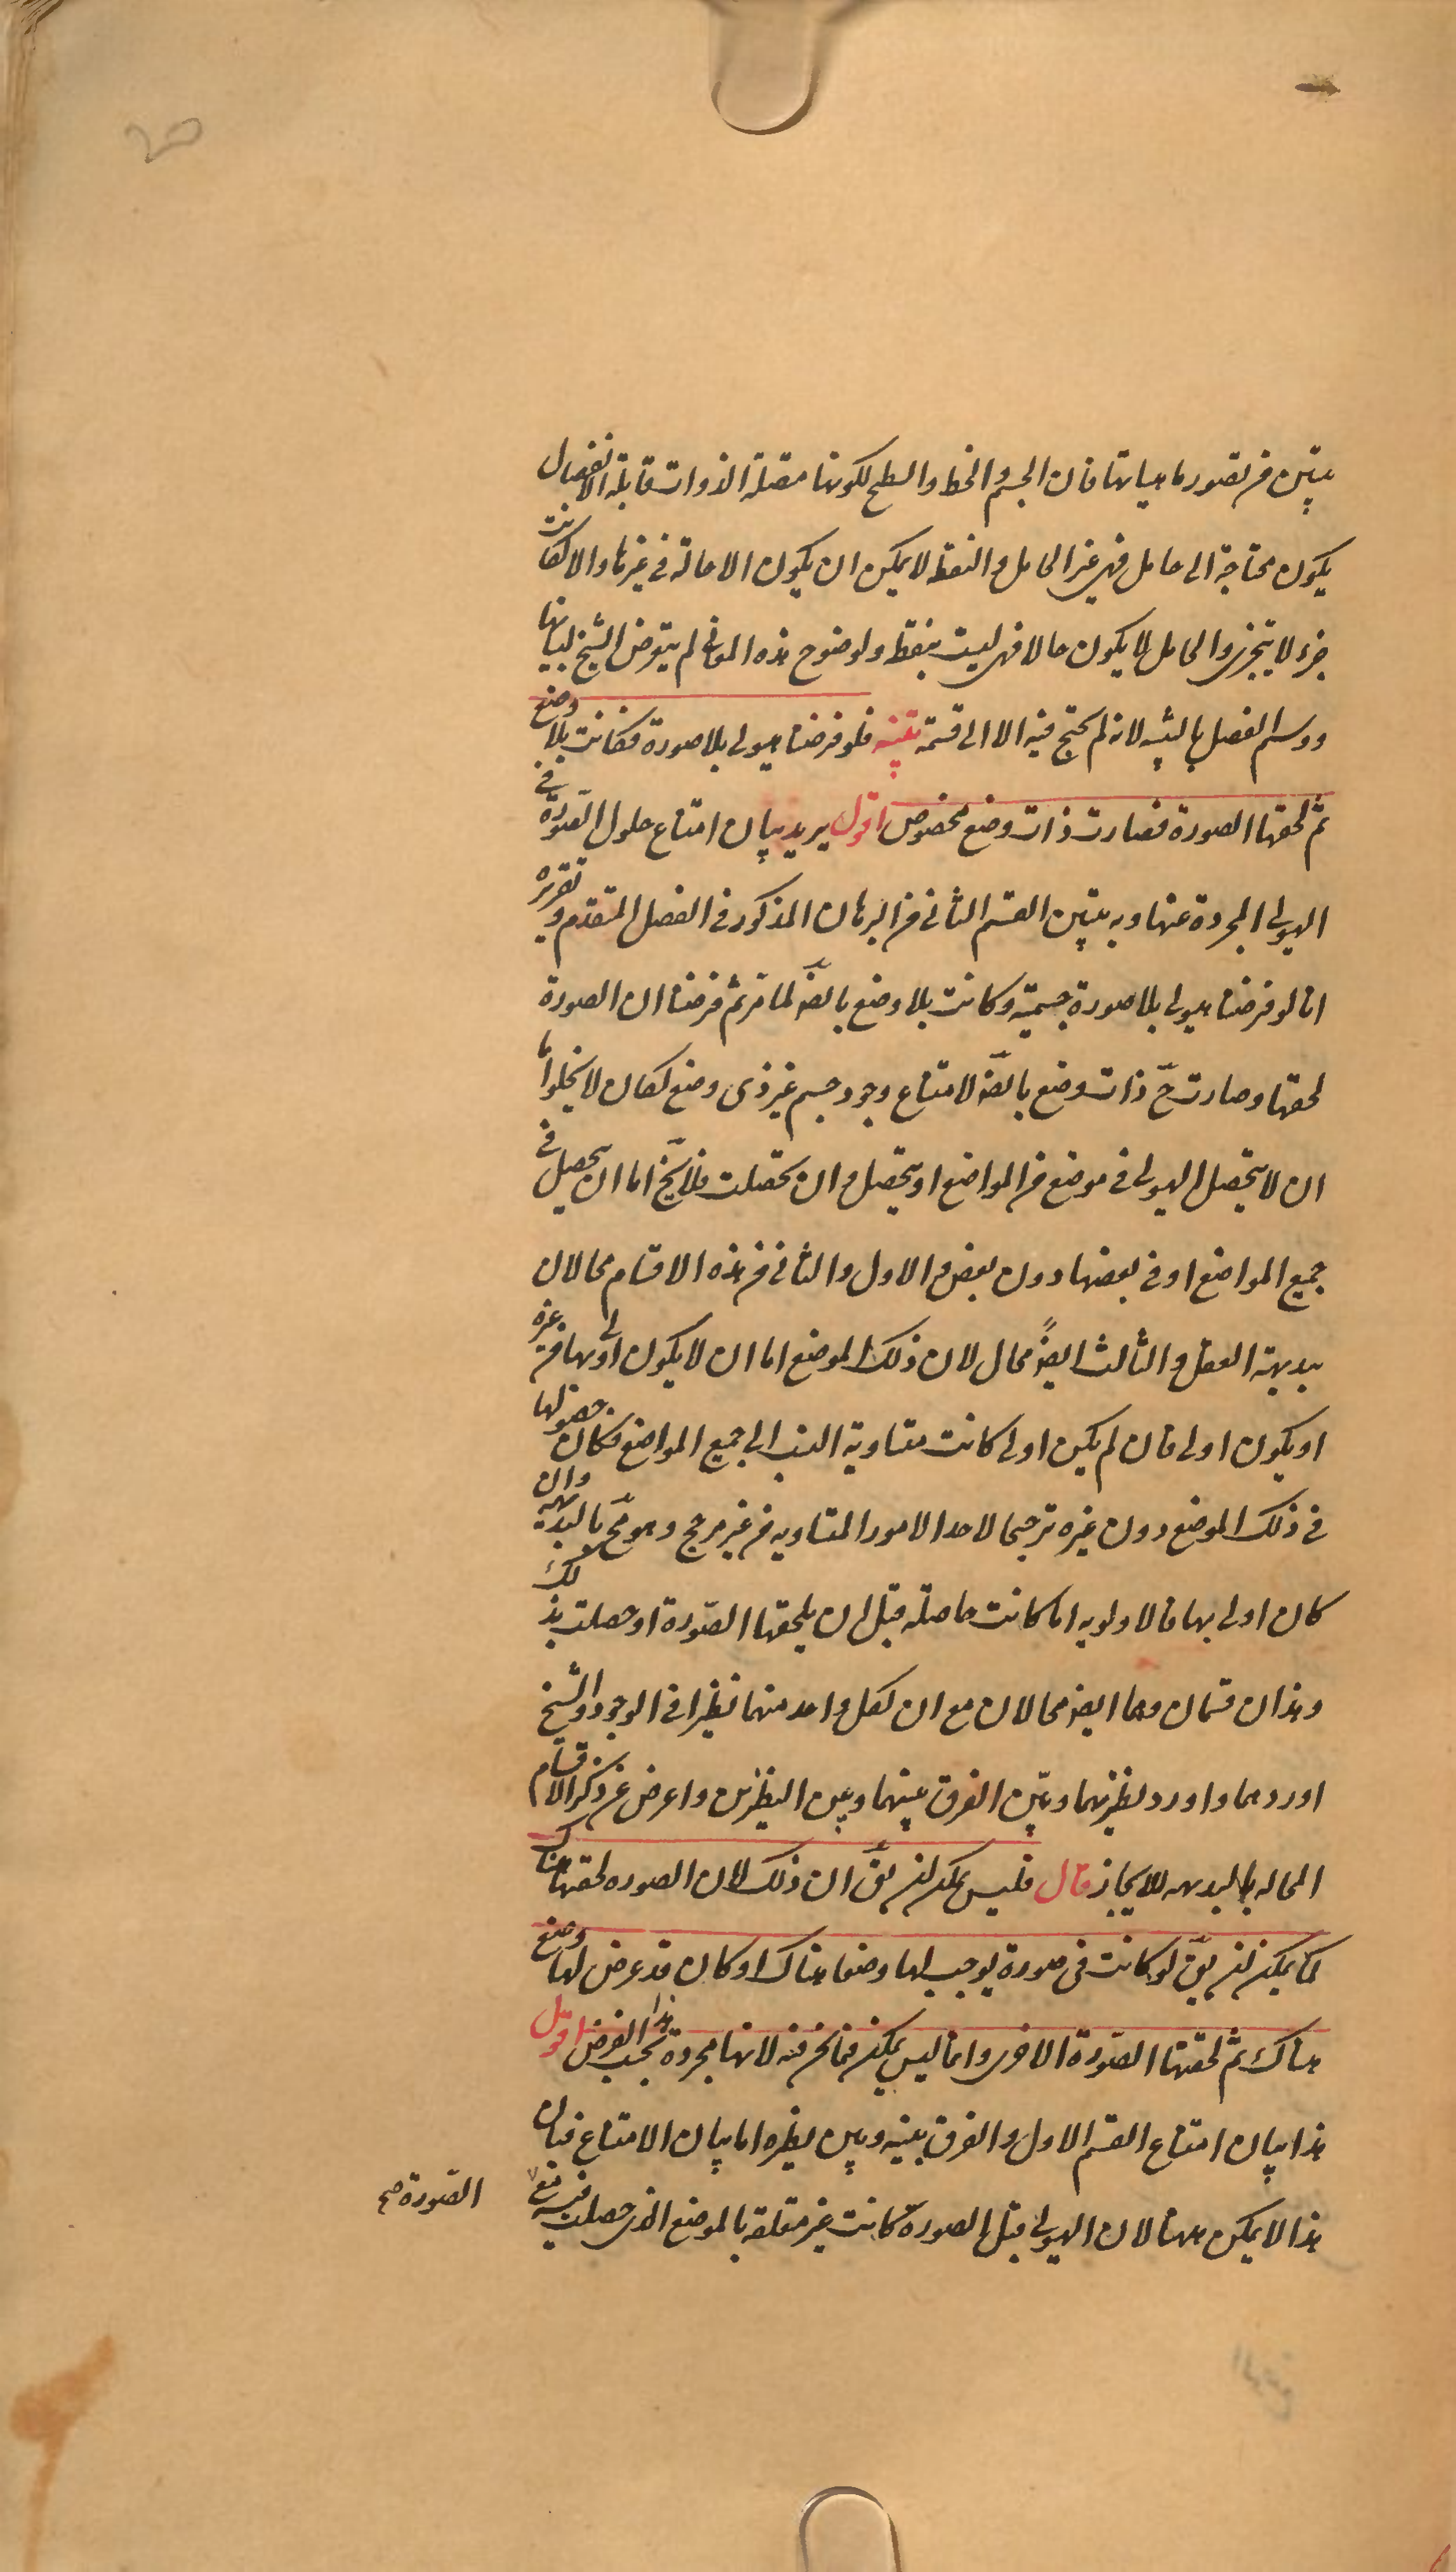 يتبين من تصور ماهياتها فان الجسم والخط والسطح لكونها متصلة الذوات قابلة الانفصال
يكون محتاجة الى حامل فهي غير الحامل والنقط لا يمكن ان يكون الا حالة في غيرها والا لكانت
جزء لا يتجزى والحامل لا يكون حالا فهي ليست بنقط ولوضوح هذه المعاني لم يتعرض الشيخ لبيانها
ووسم الفصل بالتنبيه لانه لم يحتج فيه الا الى قسمة تنبيه فلو فرضنا هيولى بلا صورة فكانت بلا وضع
ثم لحقتها الصورة فصارت ذات وضع مخصوص اقول يريد بيان امتناع حلول الصّورة في
الهيولى المجردة عنها وبه يتبين القسم الثاني من البرهان المذكور في الفصل المتقدم وتقريره
انا لو فرضنا هيولى بلا صورة جسمية وكانت بلا وضع بالضّ لما مرّ ثم فرضنا ان الصورة
لحقتها وصارت حّ ذات وضع بالضّ لامتناع وجود جسم غير ذى وضع لكان لا يخلوا اما
ان لا يتحصل الهيولى في موضع من المواضع او يتحصل وان تحصلت فلا يخ اما ان يتحصل في
جميع المواضع او في بعضها دون بعض والاول والثاني من هذه الاقسام محالان
ببديهة العقل والثالث ايضً محال لان ذلك الموضع اما ان لا يكون اولى بها من غيره
او يكون اولى فان لم يكن اولى كانت متساوية النسب الى جميع المواضع فكان حصولها
في ذلك الموضع دون غيره ترجيحا لاحد الامور المتساويه من غير مرجح وهو مّح بالبديهية وان
كان اولى بها فالاولويه اما كانت حاصله قبل ان يلحقها الصّورة او حصلت بذلك
وهذان قسمان وهما ايض محالان مع ان لكل واحد منهما نظيرا في الوجود والشيخ
اوردهما واورد نظيريهما وبيّن الفرق بينهما وبين النظيرين واعرض عن ذكر الاقسام
المحاله بالبديهه للايجاز قال فليس يمكن ان يقّ ان ذلك لان الصوره لحقتها هناك
كما يمكن ان يقّ لو كانت في صورة يوجب لها وضعا هناك او كان قد عرض لها وضع
هناك ثم لحقتها الصّورة الاخرى وانما ليس يمكن فيما نحن فيه لانها مجردة بحسب هذا الفرض اقول
هذا بيان امتناع القسم الاول والفرق بينه وبين نظيره اما بيان الامتناع فبان
هذا لا يمكن ههنا لان الهيولى قبل الصورة كانت غير متعلقه بالموضع الذى حصلت فيه مع
الصّورة صح